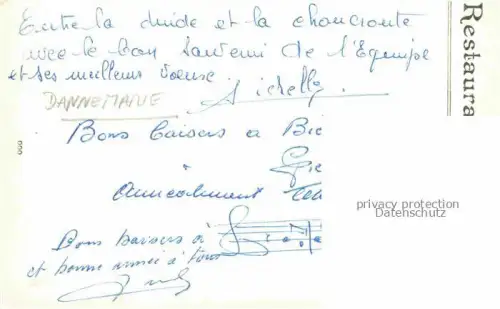 Entre la dinde et la choucroute
avec le bon souvenir de l'Equipe
et ses meilleurs voeux.
DANNEMARIE
Bons baisers a Bie
à
Amicalement
Bons baisers à
et bonne année à tous
Restaura
privacy protection
Datenschutz